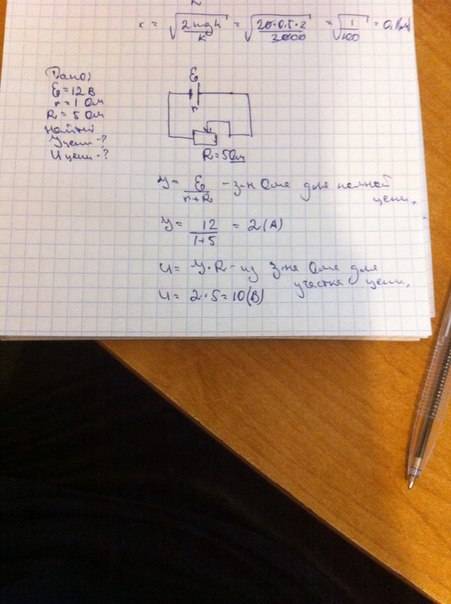 x = √(2mgh/k) = √(20·0,5·2/2000) = √(1/100) = 0,1(м)
Дано:
Ɛ = 12 В
r = 1 Ом
R = 5 Ом
Найти
Yцепи - ?
Uцепи - ?
Ɛ
r
R = 5Ом
Y = Ɛ/(r+R) - з-н Ома для полной цепи.
Y = 12/(1+5) = 2(А)
U = Y·R - из з-на Ома для участка цепи.
U = 2·5 = 10(В)